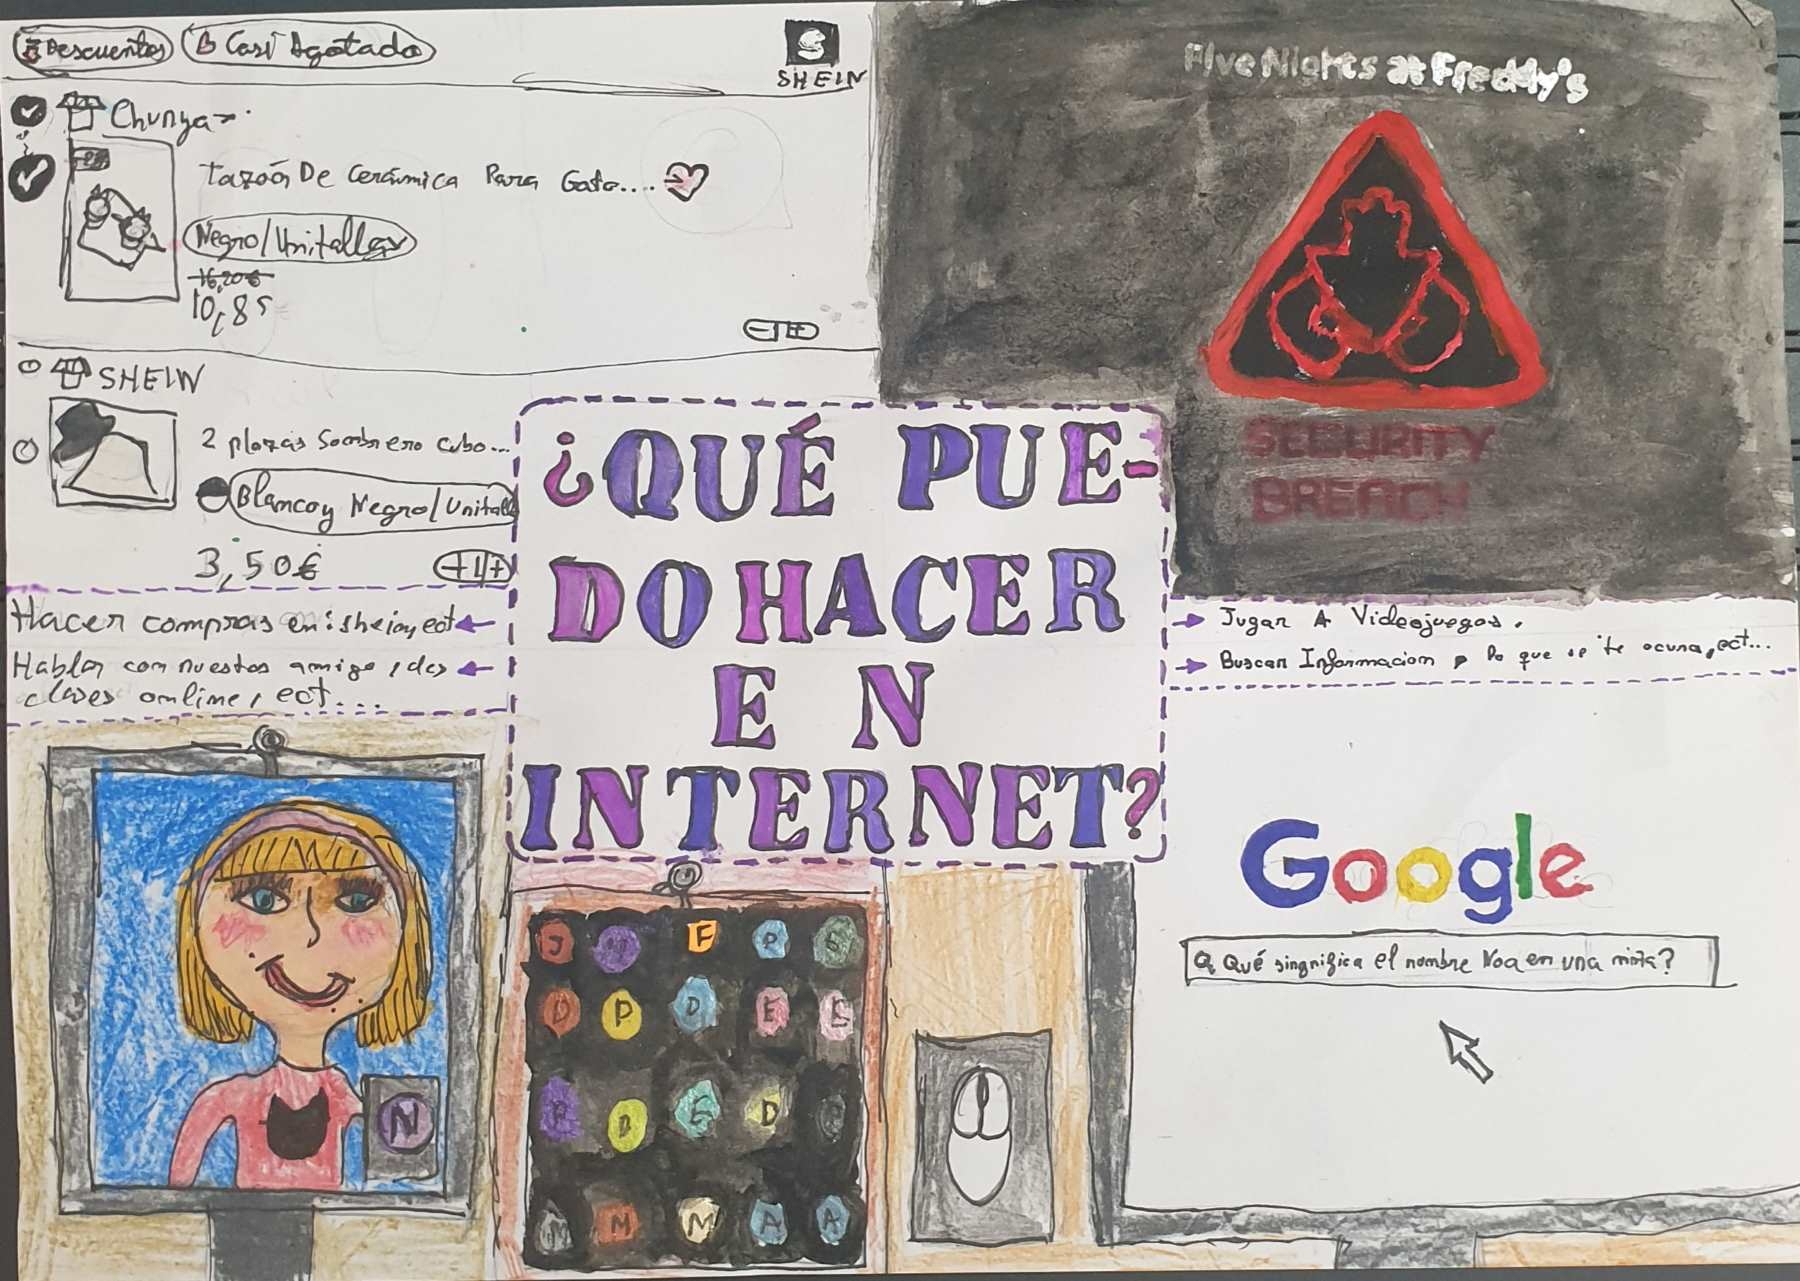 Descuentos
Casi Agotado
S
SHEIN
Chunya>
Tazón De Cerámica Para Gato....
Negro/Unitalla
16,20€
10,85
- 1 +
SHEIN
2 plazas Sombrero cubo...
Blanco y Negro/Unitalla
3,50€
- 1 +
Hacer compras en: shein, ect
Hablar con nuestos amigo, das
clases online, ect...
Five Nights at Freddy's
SECURITY
BREACH
¿QUÉ PUE-
DO HACER
EN
INTERNET?
Jugar A Videojuegos.
Buscar Informacion, lo que se te ocurra, ect...
Google
Qué singnifica el nombre Noa en una niña?
N
J M F P G
D P D E E
R D E D
M M M A A